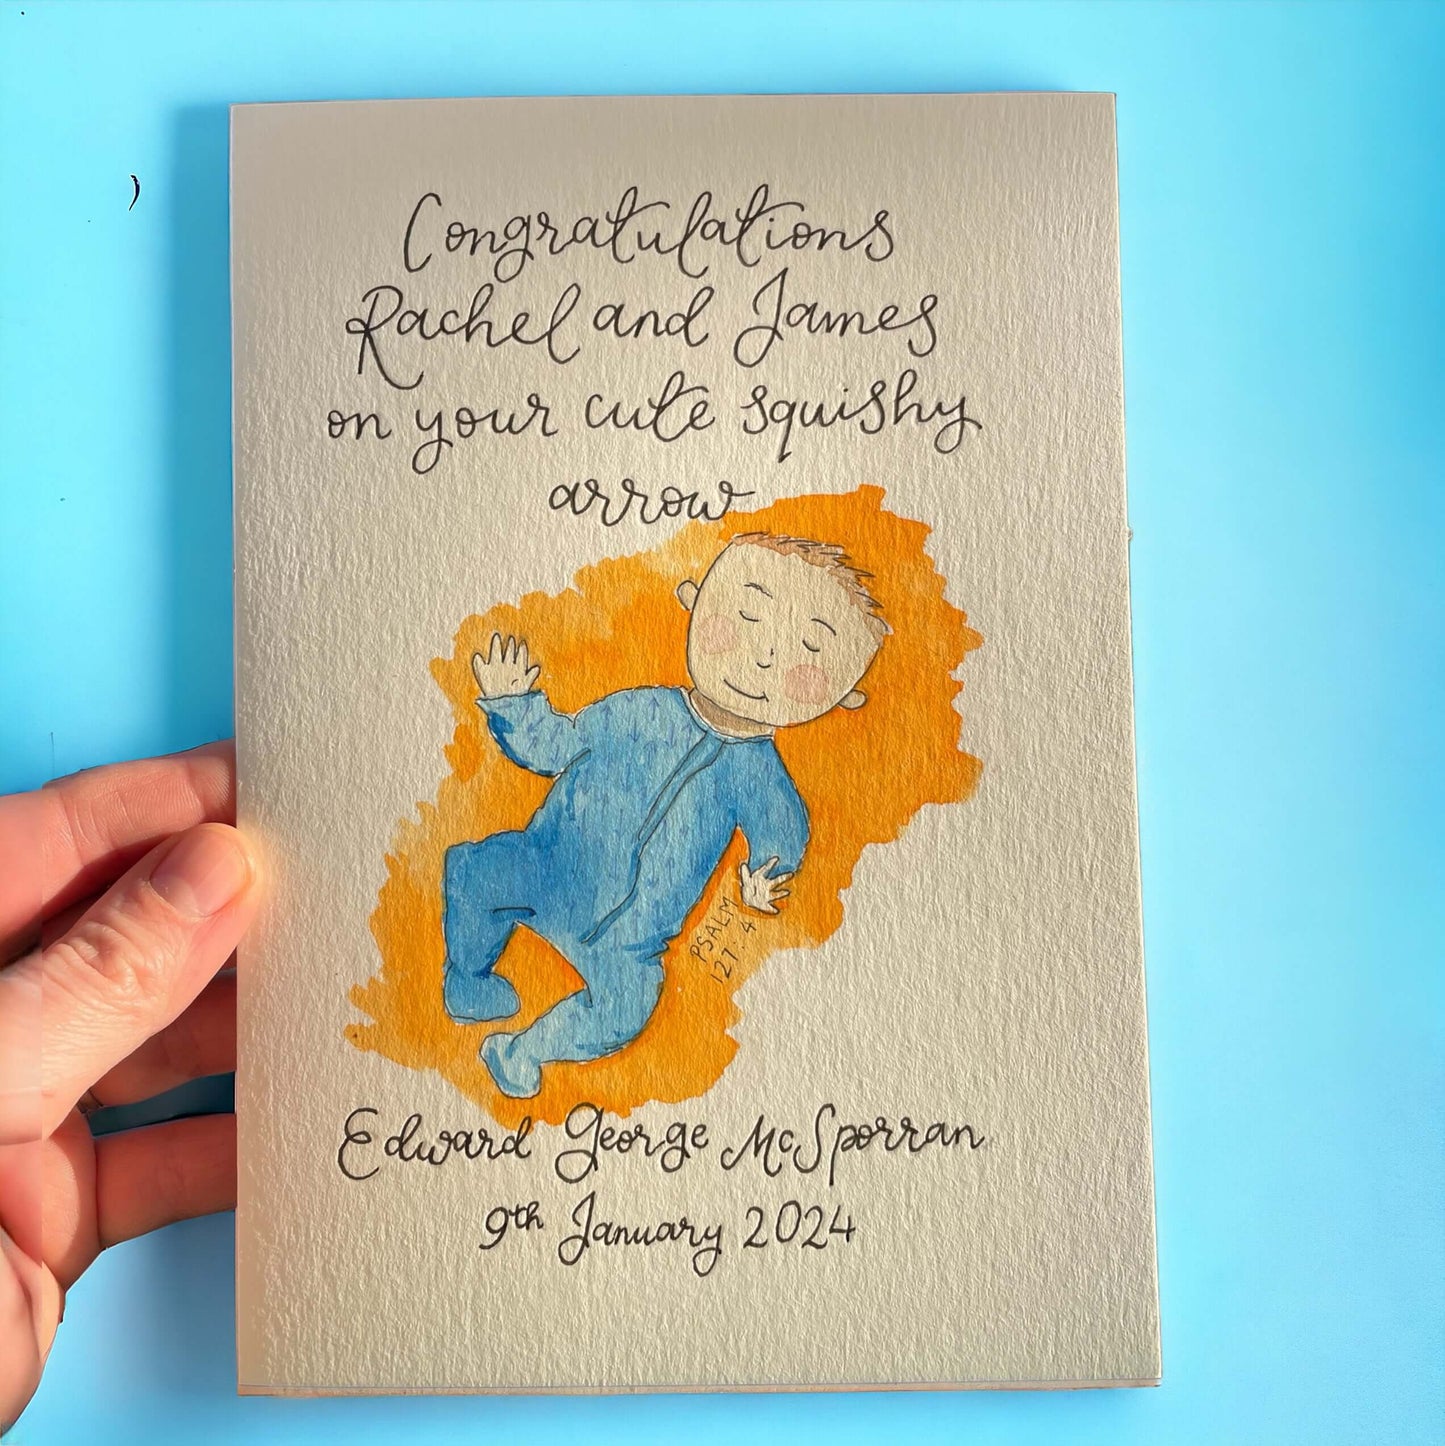 Congratulations
Rachel and James
on your cute squishy
arrow
PSALM
127:4
Edward George McSporran
9th January 2024